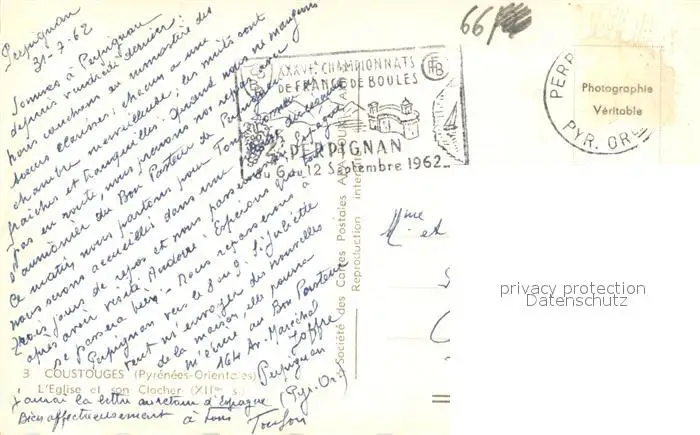 Perpignan
31-7-62
Sommes à Perpignan
depuis vendredi dernier;
nous couchons au monastère des
sœurs clarisses; chacun a une
chambre merveilleuse; les nuits sont
fraîches et tranquilles. Quand nous ne mangeons
pas en route, nous prenons nos repas
l'aumônier du Bon Pasteur de Perpignan
Ce matin, nous partons pour
nous serons accueillis dans une
trois jours de repos et nous passerons
après avoir visité Andorre. Espérons que tout
se passera bien. Nous repasserons à
Perpignan vers le 8 ou 9. Si Juliette
veut m'envoyer des nouvelles
de la maison, elle pourra
m'écrire au Bon Pasteur
164 Av. Maréchal
Joffre
Perpignan
(Pyr-Or.)
J'aurai la lettre au retour d'Espagne
Bien affectueusement à tous
66
XXXVIe CHAMPIONNATS
DE FRANCE DE BOULES
FFB
PERPIGNAN
du 6 au 12 Septembre 1962
PERP
PYR. OR
Photographie
Véritable
Société des Cartes Postales
Reproduction
Mme et
privacy protection
Datenschutz
3 COUSTOUGES (Pyrénées-Orientales)
L'Eglise et son Clocher (XIIme s.)